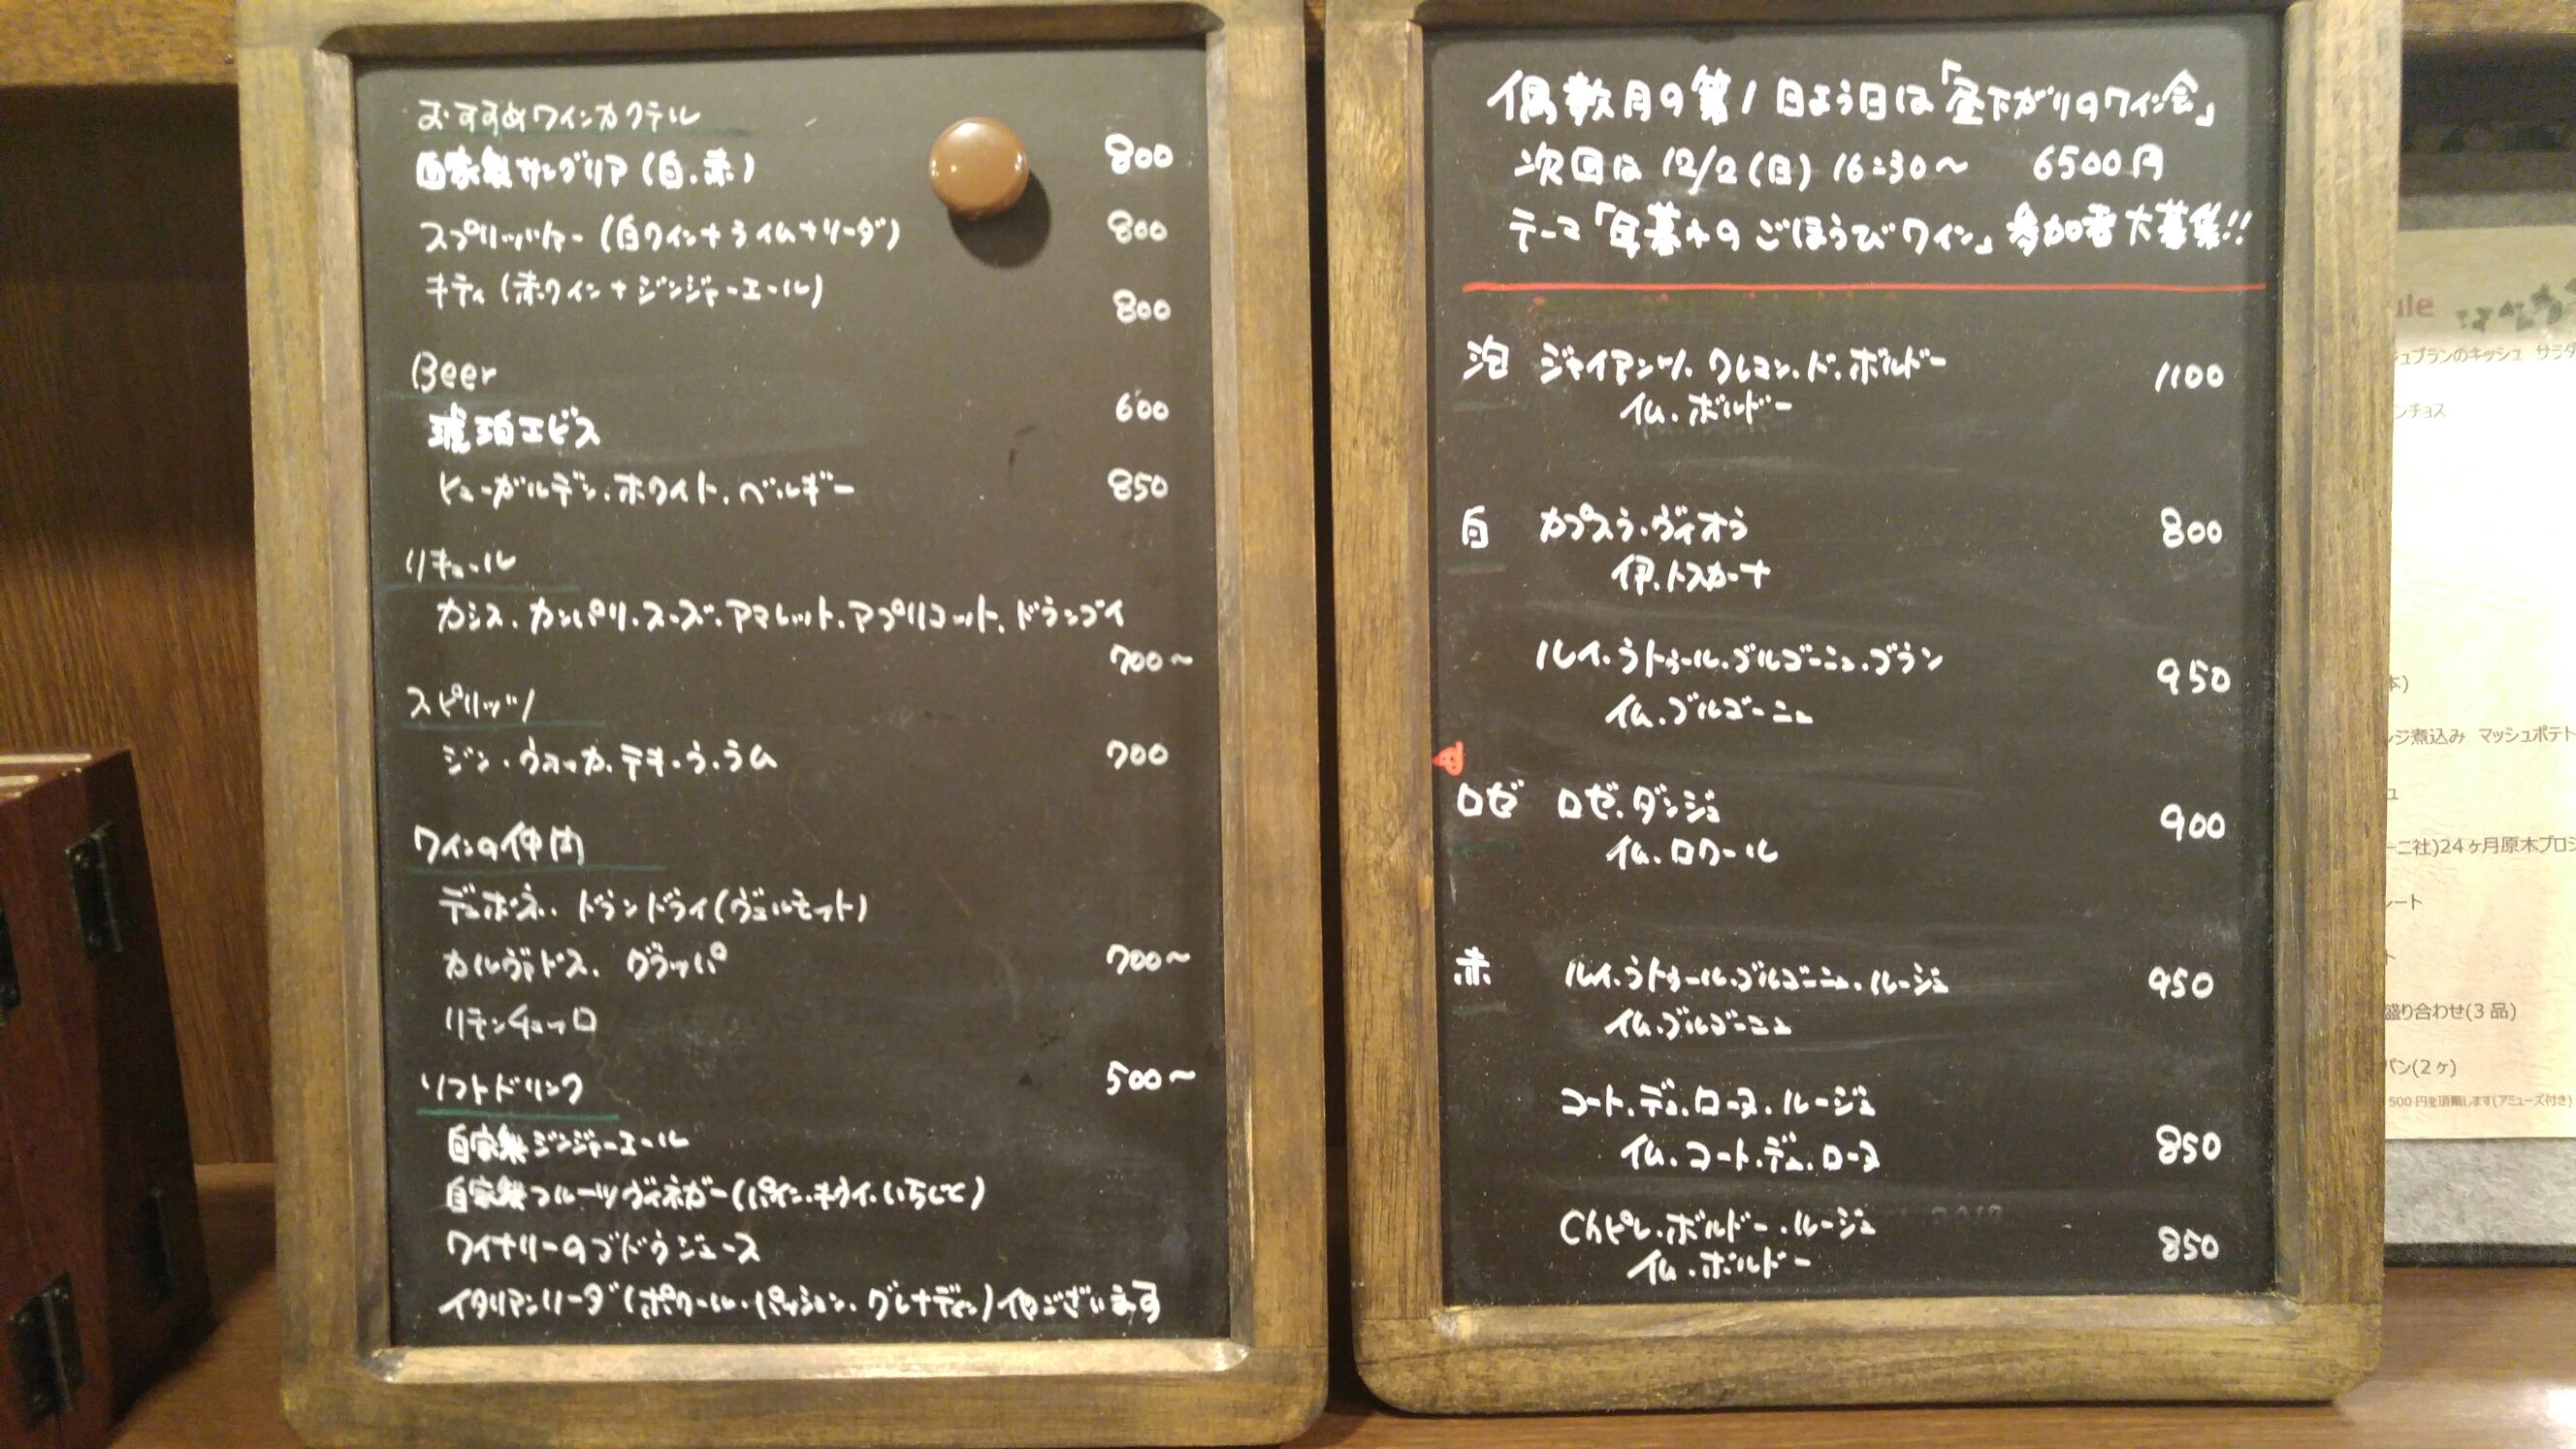 おすすめワインカクテル
自家製サングリア(白.赤) 800
スプリッツァー(白ワイン+ライム+ソーダ) 800
キティ(赤ワイン+ジンジャーエール) 800
Beer
琥珀エビス 600
ヒューガルデン.ホワイト.ベルギー 850
リキュール
カシス.カンパリ.スーズ.アマレット.アプリコット.ドランブイ
700〜
スピリッツ
ジン.ウォッカ.テキーラ.ラム 700
ワインの仲間
デュボネ.ドランドライ(ヴェルモット)
カルヴァドス.グラッパ 700〜
リモンチェッロ
ソフトドリンク 500〜
自家製ジンジャーエール
自家製フルーツヴィネガー(パイン.キウイ.いちじく)
ワイナリーのブドウジュース
イタリアンソーダ(ポワール.パッション.グレナディン)他ございます
偶数月の第1日よう日は「昼下がりのワイン会」
次回は 12/2(日) 16:30〜 6500円
テーマ「年暮れのごほうびワイン」参加者大募集!!
泡 ジャイアンツ.クレマン.ド.ボルドー 1100
仏.ボルドー
白 カプスラ.ヴィオラ 800
伊.トスカーナ
ルイ.ラトゥール.ブルゴーニュ.ブラン 950
仏.ブルゴーニュ
ロゼ ロゼ.ダンジュ 900
仏.ロワール
赤 ルイ.ラトゥール.ブルゴーニュ.ルージュ 950
仏.ブルゴーニュ
コート.デュ.ローヌ.ルージュ
仏.コート.デュ.ローヌ 850
Chピレ.ボルドー.ルージュ 850
仏.ボルドー
ule
ュブランのキッシュ サラダ
ンチョス
本)
ンジ煮込み マッシュポテト
ュ
ーニ社)24ヶ月原木プロシ
レート
ト
盛り合わせ(3品)
パン(2ヶ)
500円を頂戴します(アミューズ付き)